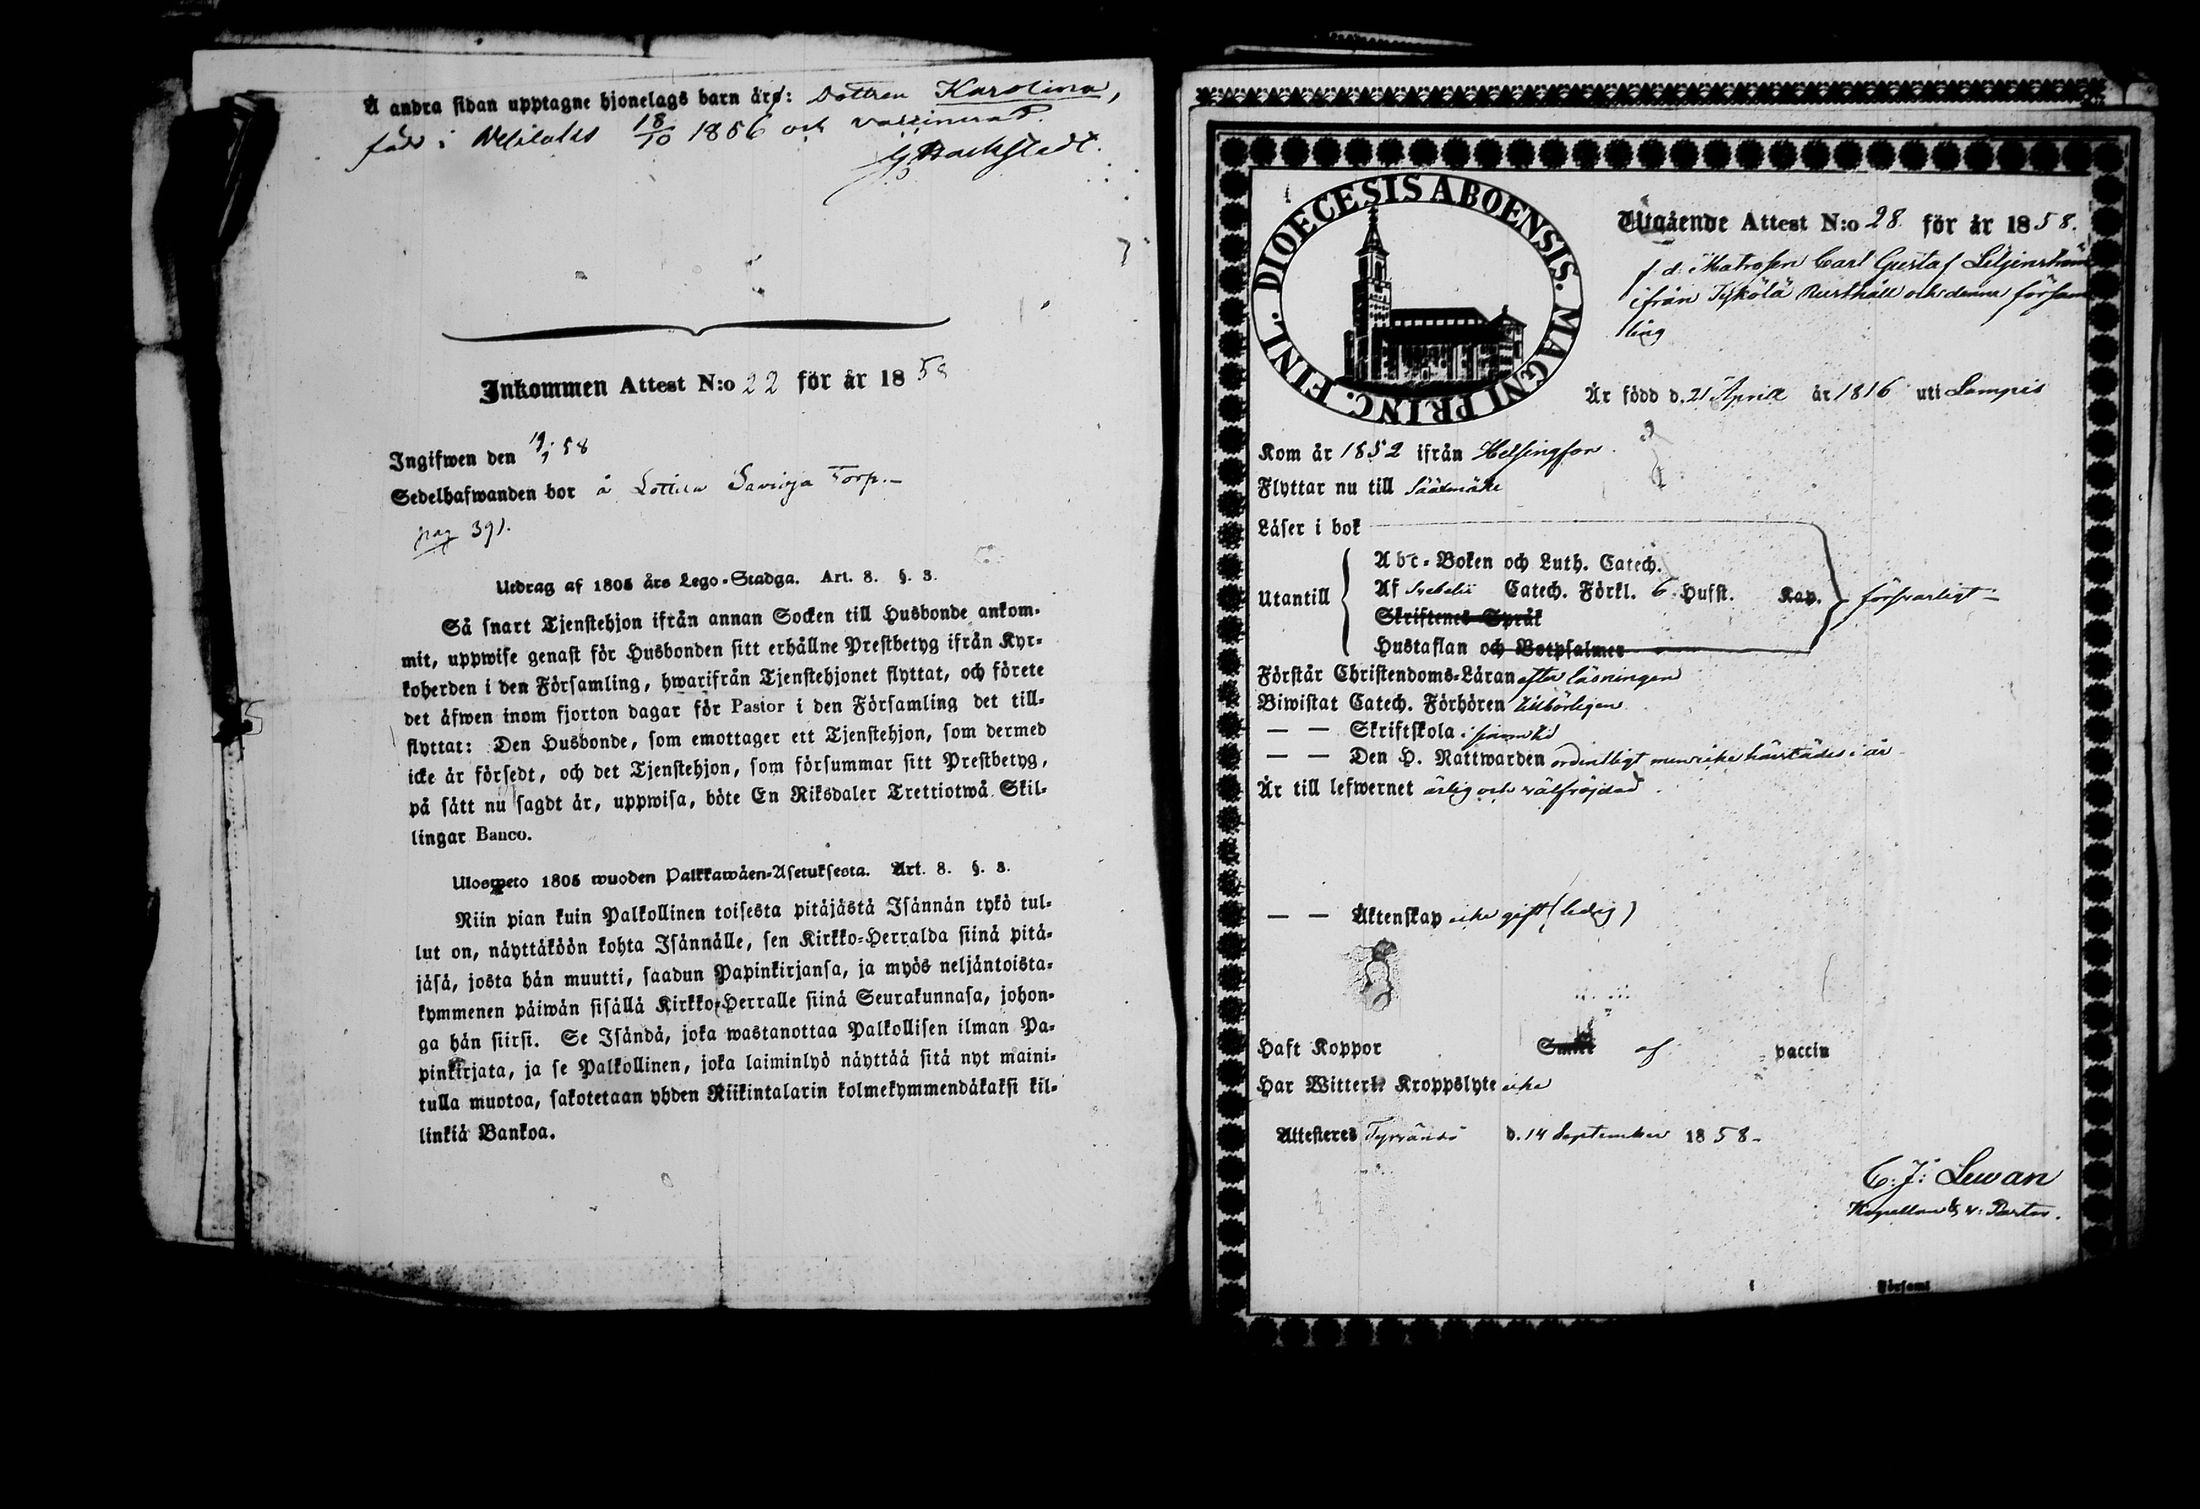 Å andra sidan upptagne hjonelags barn äro: Dottren Karolina,
född i 18/10 1856 och vaccinerad.
G. Backstedt.
Inkommen Attest N:o 22 för år 1858
Ingifwen den 19/9 58
Sedelhafwanden bor å Torp.
pag 391.
Utdrag af 1805 års Lego-Stadga. Art. 8. §. 3.
Så snart Tjenstehjon ifrån annan Socken till Husbonde ankom-
mit, uppwise genast för Husbonden sitt erhållne Prestbetyg ifrån Kyr-
koherden i den Församling, hwarifrån Tjenstehjonet flyttat, och förete
det äfwen inom fjorton dagar för Pastor i den Församling det till-
flyttat: Den Husbonde, som emottager ett Tjenstehjon, som dermed
icke är försedt, och det Tjenstehjon, som försummar sitt Prestbetyg,
på sätt nu sagdt är, uppwisa, böte En Riksdaler Trettiotwå Skil-
lingar Banco.
Ulosweto 1805 wuoden Palkkawäen-Asetuksesta. Art. 8. §. 3.
Niin pian kuin Palkollinen toisesta pitäjästä Isännän tykö tul-
lut on, näyttäköön kohta Isännälle, sen Kirkko-Herralda siinä pitä-
jäsä, josta hän muutti, saadun Papinkirjansa, ja myös neljäntoista-
kymmenen päiwän sisällä Kirkko-Herralle siinä Seurakunnasa, johon-
ga hän siirsi. Se Isändä, joka wastanottaa Palkollisen ilman Pa-
pinkirjata, ja se Palkollinen, joka laiminlyö näyttää sitä nyt maini-
tulla muotoa, sakotetaan yhden Riikintalarin kolmekymmendäkaksi kil-
linkiä Bankoa.
DIOECESIS ABOENSIS. MAGNI PRINC. FINL.
Utgående Attest N:o 28 för år 1858.
f. d. Matrosen Carl Gustaf Liljenström
ifrån Tykölä Rusthåll och denna försam
ling
Är född d. 21 April år 1816 uti Lampis
Kom år 1852 ifrån Helsingfors
Flyttar nu till Sääxmäki
Läser i bok
Abc-Boken och Luth. Catech.
Utantill Af Svebelii Catech. Förkl. 6 Hufst. Kap. försvarligt
Skriftenes Språk
Hustaflan och Botpsalmer
Förstår Christendoms-Läran efter läsningen
Biwistat Catech. Förhören tillbörligen
— — Skriftskola
— — Den H. Nattwarden ordentligt men icke härstädes i år
Är till lefwernet ärlig och välfrejdad
— — Äktenskap icke gift (ledig)
Haft Koppor af vaccin
Har Witterl. Kroppslyte icke
Attesteres Tyrvändö d. 14 September 1858.
C: J: Lewan
Kapellan & v. Pastor.
Församl